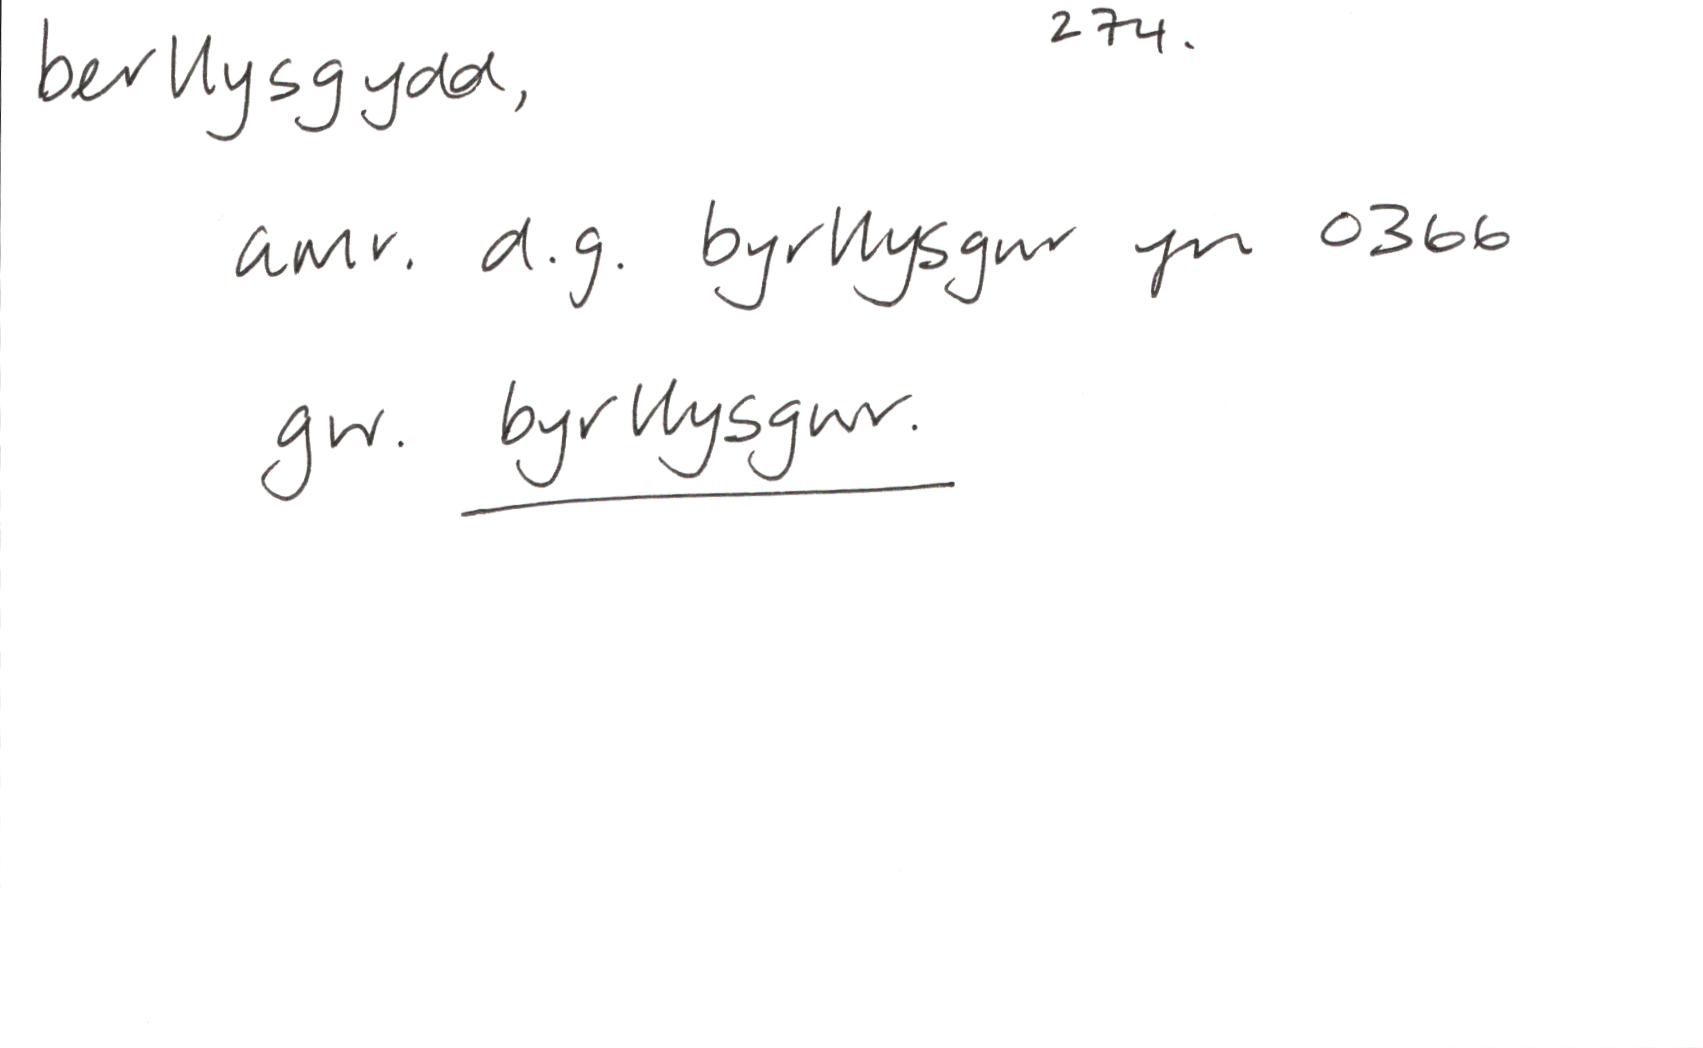 berllysgydd, 274.
amr. d.g. byrllysgwr yn 0366
gw. byrllysgwr.